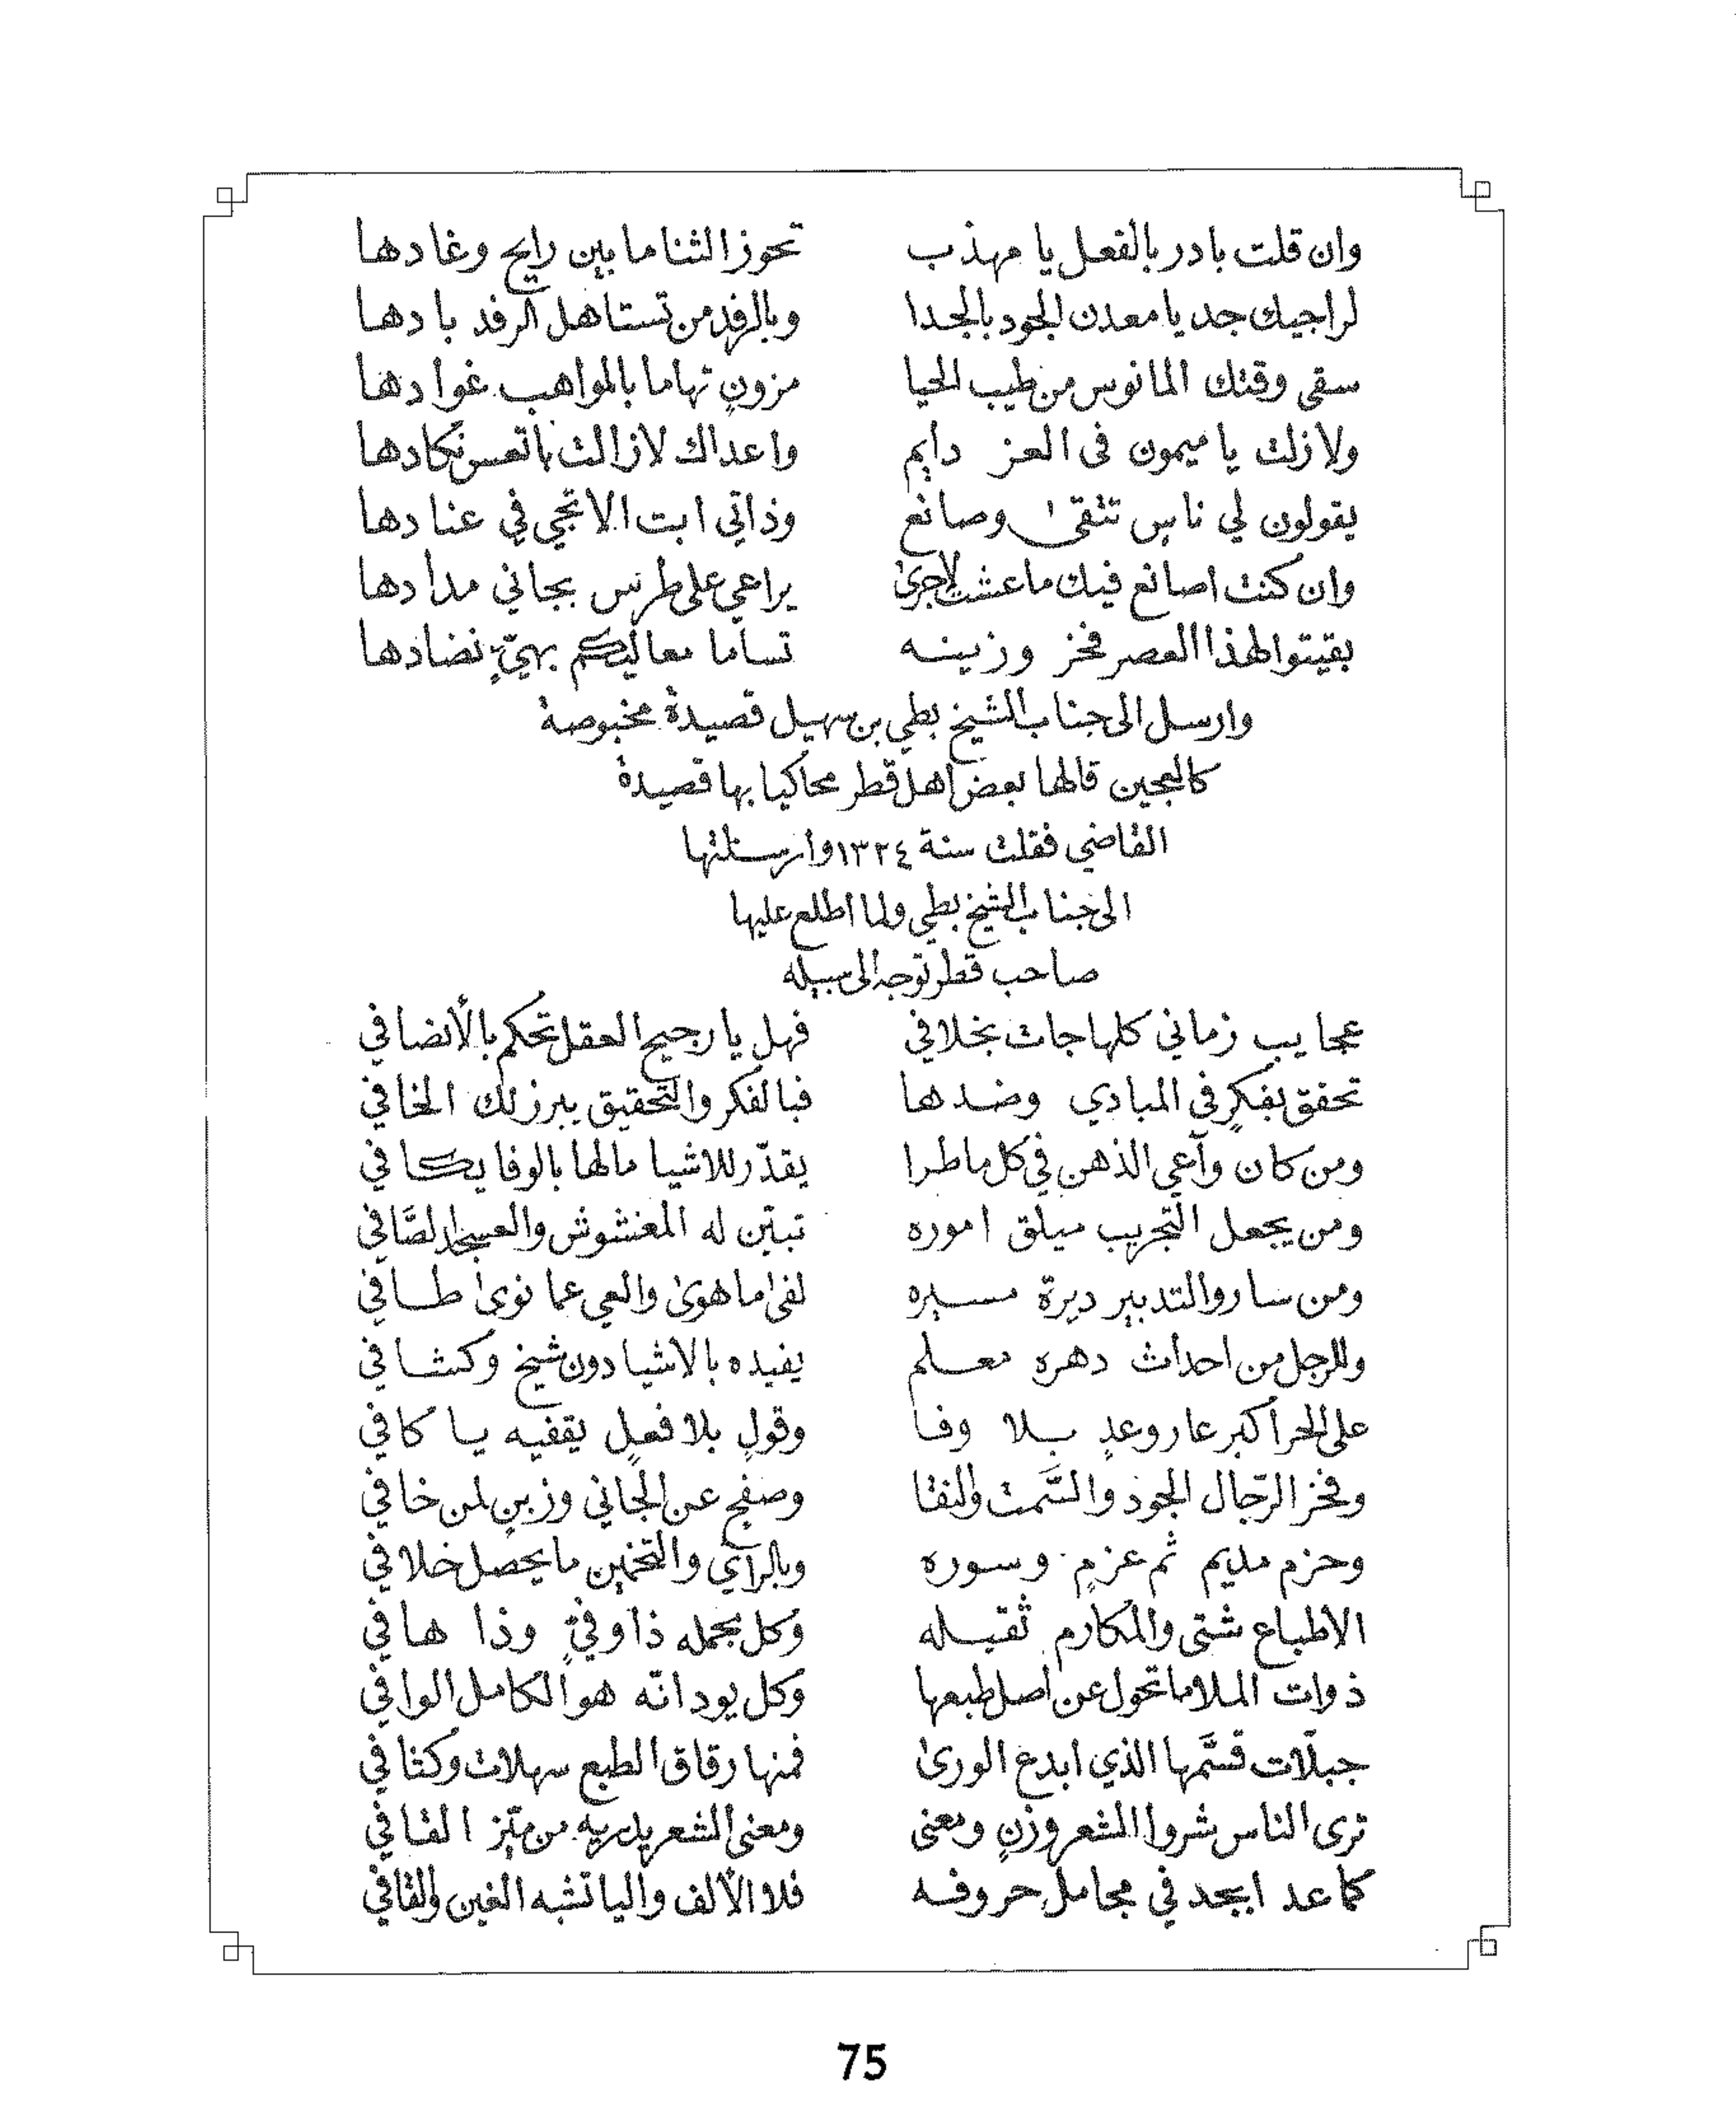 وان قلت بادر بالفعل يا مهذب تحوز الثنا ما بين رايح وغادها
لراجيك جد يا معدن الجود بالجدا وبالرفد من تستاهل الرفد بادها
سقى وقتك المانوس من طيب الحيا مزونٍ تهاما بالمواهب غوادها
ولا زلت يا ميمون فى العز دايم واعداك لا زالت باتعس نكادها
يقولون لي ناسٍ تتقى وصانع وذاتي ابت الا تجي في عنادها
وان كنت اصانع فيك ما عشت لا جرى يراعي على طرس بجاني مدادها
بقيتوا لهذا العصر فخر وزينه تساما معاليكم بهيّ نضادها
وارسل الى جناب الشيخ بطي بن سهيل قصيدة مخبوصة
كالعجين قالها بعض اهل قطر محاكيا بها قصيدة
القاضي فقلت سنة ١٣٢٤ وأرسلتها
الى جناب الشيخ بطي ولما اطلع عليها
صاحب قطر توجه الى سبيله
عجايب زماني كلها جات بخلافي فهل يا رجيح العقل تحكم بالأنصافي
تحقق بفكرٍ في المبادي وضدها فبالفكر والتحقيق يبرز لك الخافي
ومن كان وآعي الذهن في كل ما طرا يقدّر للاشيا مالها بالوفا يكافي
ومن يجعل التجريب ميلق اموره تبيّن له المغشوش والعسجد الصَّافي
ومن سار والتدبير ديرة مسيره لفى ما هوى والعي عما نوى طافي
وللرجل من احداث دهره معلم يفيده بالاشيا دون شيخ وكشافي
على الحر أكبر عار وعدٍ بلا وفا وقولٍ بلا فعلٍ يقفيه يا كافي
وفخر الرّجال الجود والسَّمت والنقا وصفحٍ عن الجاني وزبنٍ لمن خافي
وحزم مديم ثم عزمٍ وسوره وبالرآي والتخمين ما يحصل خلافي
الاطباع شتى والمكارم ثقيله وكل بحمله ذا وفيٍّ وذا هافي
ذوات الملا ما تحول عن اصل طبعها وكل يود انّه هو الكامل الوافي
جبلّات قسَّمها الذي ابدع الورى فمنها رقاق الطبع سهلات وكثافي
ترى الناس شروا الشعر وزنٍ ومعنى ومعنى الشعر يدريه من ميّز القافي
كما عد ابجد في مجامل حروفه فلا الألف واليا تشبه الغين والقافي
75